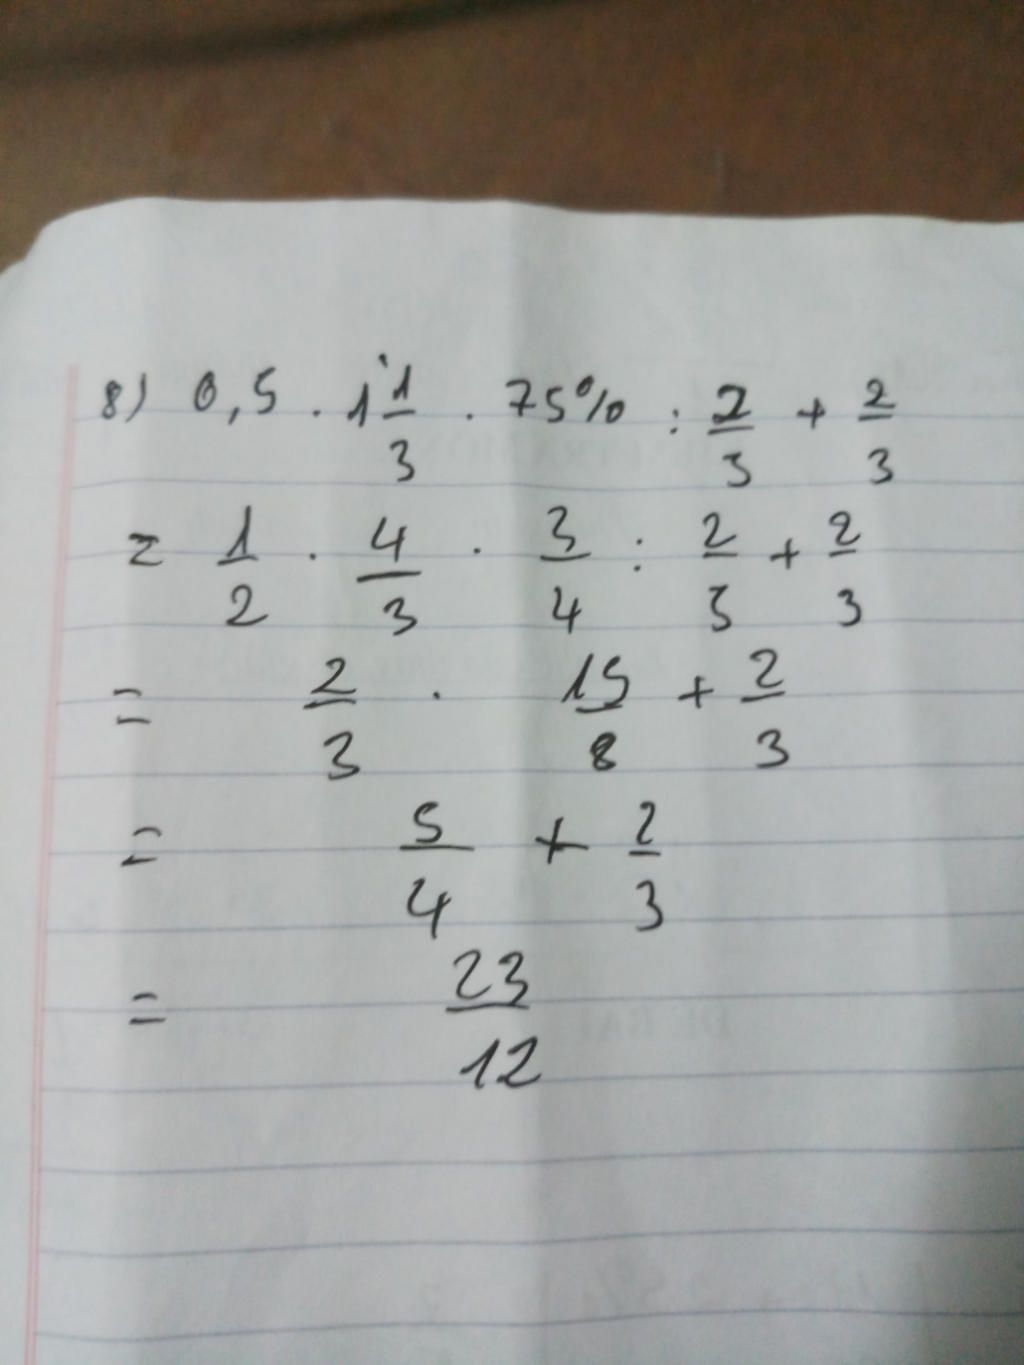 8) 0,5 . 1 1/3 . 75% : 2/5 + 2/3
= 1/2 . 4/3 . 3/4 : 2/5 + 2/3
= 2/3 . 15/8 + 2/3
= 5/4 + 2/3
= 23/12